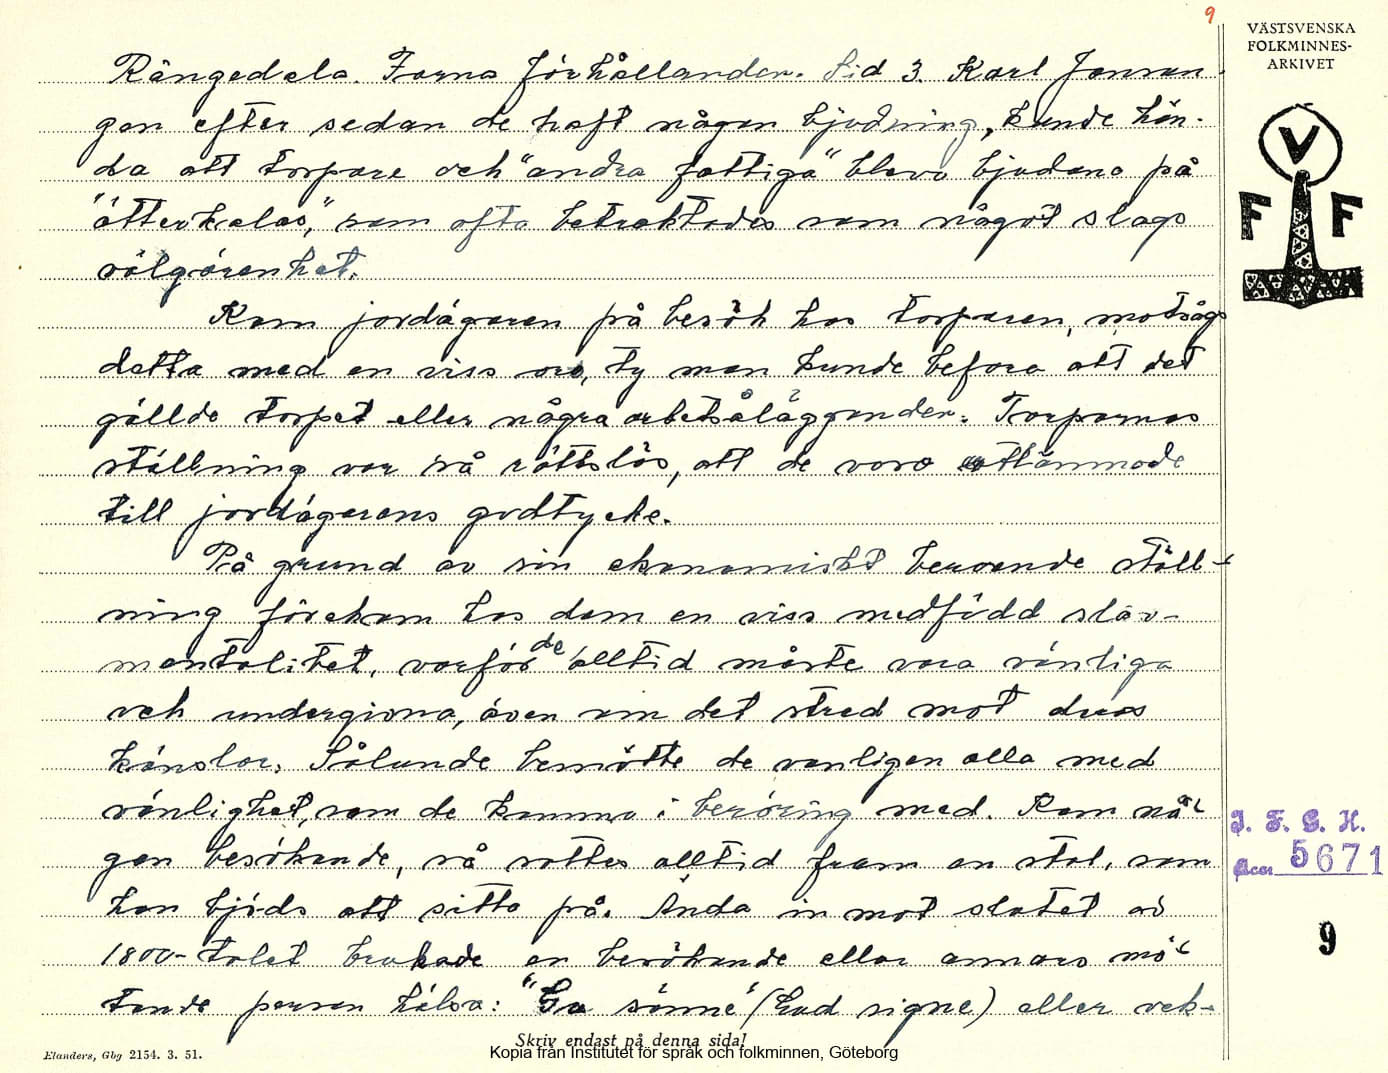 9
VÄSTSVENSKA
FOLKMINNES-
ARKIVET
V
F F
Rångedala. Forna förhållanden. Sid 3. Karl Jonsan.
gen efter sedan de haft någon bjudning, kunde hän-
da att torpare och "andra fattiga" blevo bjudna på
"åtterkalas", som ofta betraktades som något slags
välgörenhet.
Kom jordägaren på besök hos torparen, motsågs
detta med en viss oro, ty man kunde befara att det
gällde torpet eller några arbetsålägganden. Torparnas
ställning var så rättslös, att de voro utlämnade
till jordägarens godtycke.
På grund av sin ekonomiskt beroende ställ-
ning förekom hos dem en viss medfödd slav-
mentalitet, varför de alltid måste vara vänliga
och undergivna, även om det stred mot deras
känslor. Sålunda bemötte de vanligen alla med
vänlighet, som de kommo i beröring med. Kom nå-
gon besökande, så sattes alltid fram en stol, som
han bjöds att sitta på. Ända in mot slutet av
1800-talet brukade en besökande eller annars mö-
tande person hälsa: "Gu sinne" (Gud signe) eller ock-
I. F. G. H.
Acc. 5671
9
Skriv endast på denna sida!
Elanders, Gbg 2154. 3. 51.
Kopia från Institutet för språk och folkminnen, Göteborg